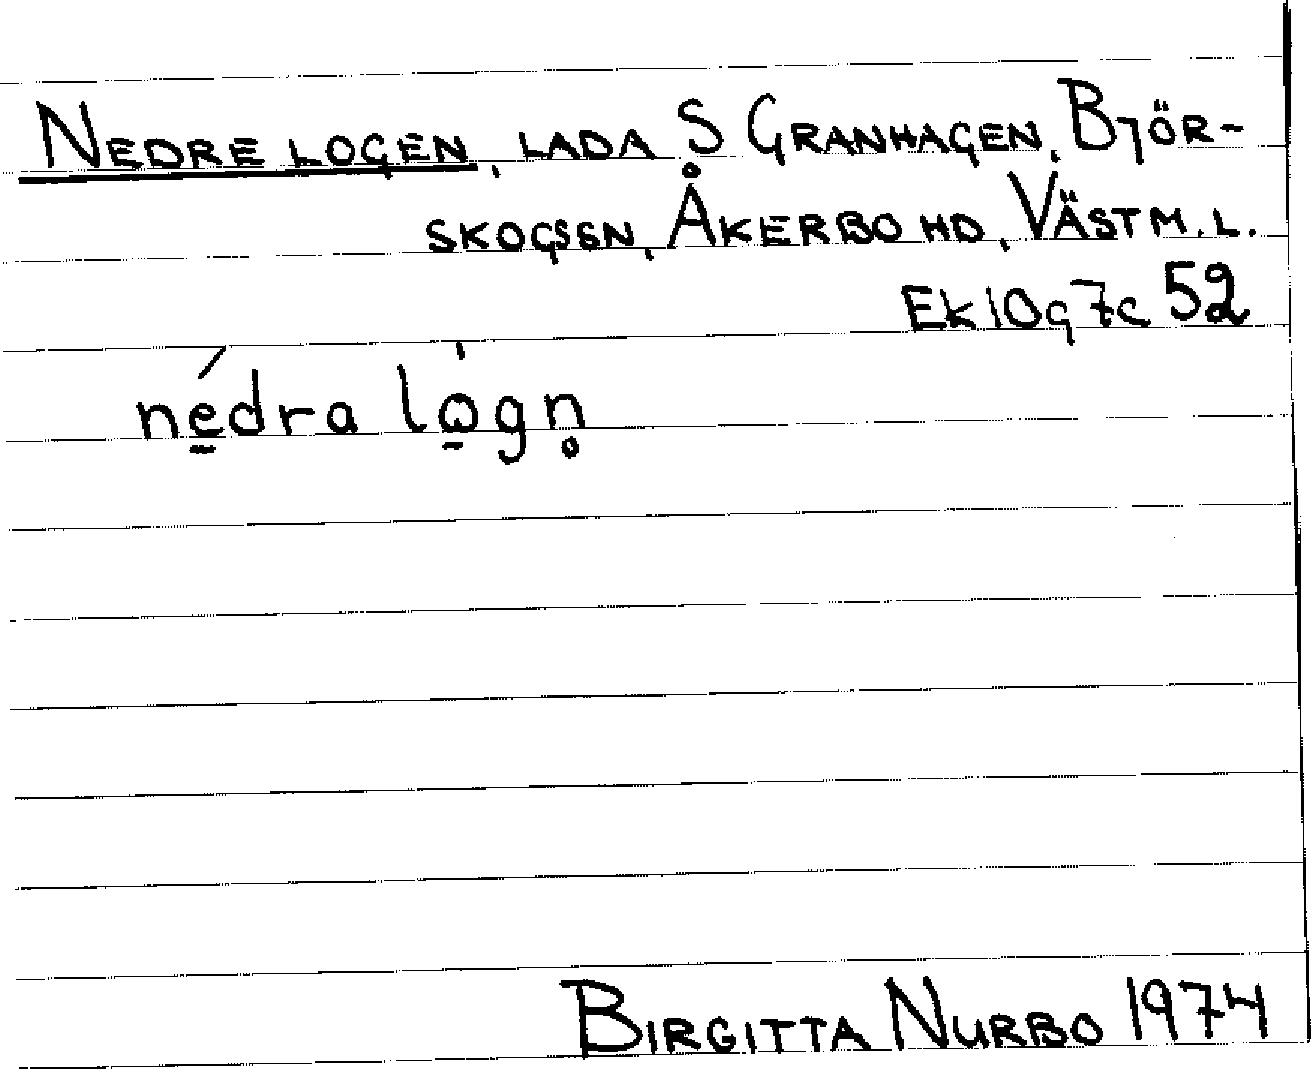 NEDRE LOGEN, LADA S GRANHAGEN, BJÖR-
SKOGSSN, ÅKERBO HD, VÄSTM. L.
EK 10g7c 52
né̠dra lὼ̠gn̥
BIRGITTA NURBO 1974